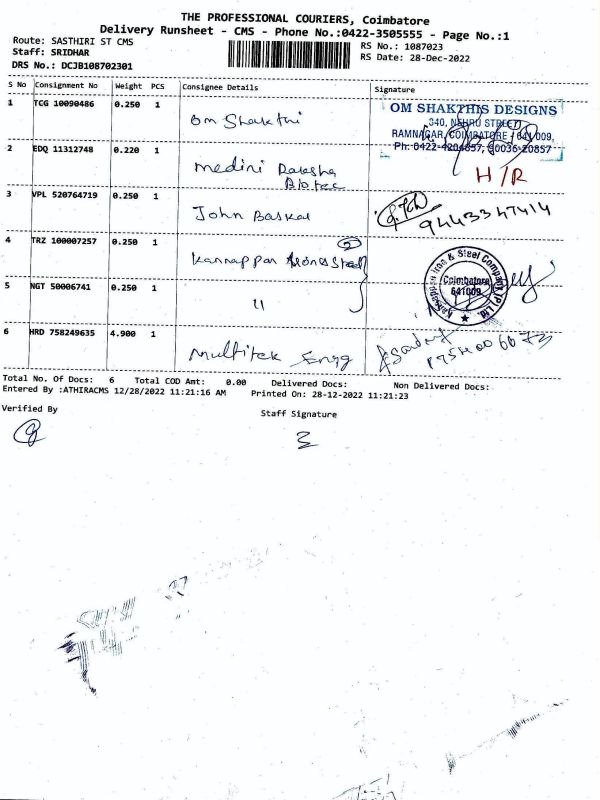 THE PROFESSIONAL COURIERS, Coimbatore
Delivery Runsheet - CMS - Phone No.:0422-3505555 - Page No.:1
Route: SASTHIRI ST CMS
Staff: SRIDHAR
DRS No.: DCJB108702301
RS No.: 1087023
RS Date: 28-Dec-2022
S No Consignment No Weight PCS Consignee Details Signature
1 TCG 10090486 0.250 1 Om Shakthi
OM SHAKTHIS DESIGNS
340, NEHRU STREET
RAMNAGAR, COIMBATORE / 641 009,
Ph: 0422-4204857, 90036-20857
2 EDQ 11312748 0.220 1 Medini Raksha
Biotec
H/R
3 VPL 520764719 0.250 1 John Baskar
9443347414
4 TRZ 100007257 0.250 1 Kannappan Iron & Steel
2
Kannappan Iron & Steel Company (P) Ltd.
Coimbatore
641009
5 NGT 50006741 0.250 1 "
6 HRD 758249635 4.900 1 Multitek Engg
Total No. Of Docs: 6 Total COD Amt: 0.00 Delivered Docs: Non Delivered Docs:
Entered By :ATHIRACMS 12/28/2022 11:21:16 AM Printed On: 28-12-2022 11:21:23
Verified By
Staff Signature